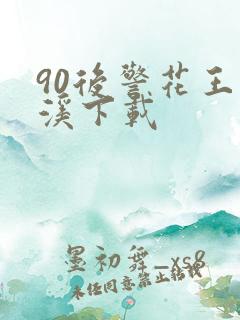 90後警花王
溪下載
墨初舞_xs8
未任同意禁止转载